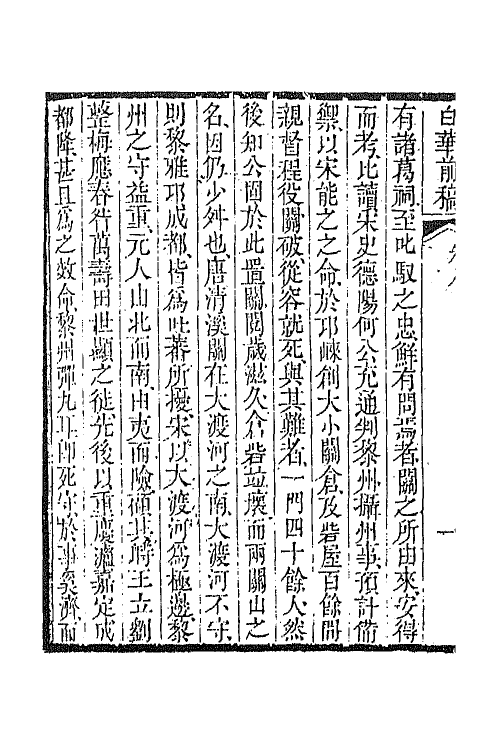 白華前稿
卷八
一
有諸葛祠至叱馭之忠鮮有問焉者關之所由來安得
而考比讀宋史德陽何公充通判黎州攝州事預計備
禦以宋能之之命於邛崍創大小關倉及砦屋百餘間
親督程役關破從容就死與其難者一門四十餘人然
後知公固於此置關閱歲滋久倉砦並壞而兩關山之
名因仍少舛也唐清溪關在大渡河之南大渡河不守
則黎雅邛成都皆為吐蕃所擾宋以大渡河為極邊黎
州之守益重元人由北而南由夷而險碩其時王立劉
整梅應春昝萬壽田世顯之徒先後以重慶瀘嘉定成
都降甚且為之效命黎州彈九耳即死守於事奚濟而